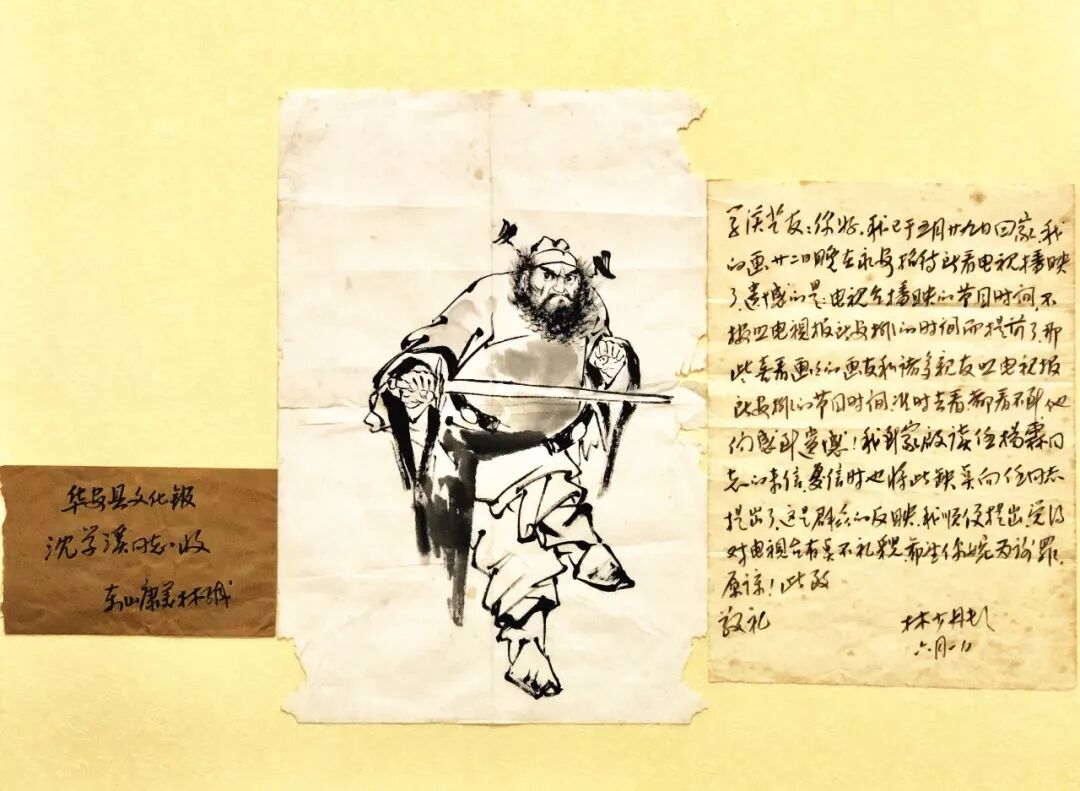 华安县文化馆
沈学溪同志收
东山康美林缄
学溪艺友：你好，我已于五月廿九日回家，我
的画廿二日晚在永安招待所看电视播映
了，遗憾的是：电视台播映的节目时间，不
按照电视报所安排的时间而提前了，那
些喜看画的画友和诸多亲友照电视报
所安排的节目时间准时去看，都看不到，他
们感到遗憾！我到家启读任杨霖同
志的来信，复信时也将此缺点向任同志
提出了，这是群众的反映，我顺便提出，觉得
对电视台有点不礼貌，希望你婉为谢罪，
原谅！此致
敬礼
林少丹
六月一日